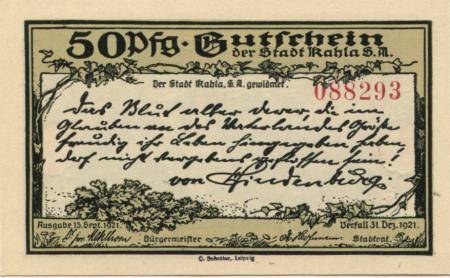 50 Pfg. Gutschein
der Stadt Kahla S.A.
Der Stadt Kahla, S.A. gewidmet.
088293
Das Blut aller derer, die im
Glauben an des Vaterlandes Größe
freudig ihr Leben hingegeben haben,
darf nicht vergebens geflossen sein!
von Hindenburg.
Ausgabe 15. Sept. 1921.
Verfall 31. Dez. 1921.
Bürgermeister
Stadtrat.
C. Schröter, Leipzig